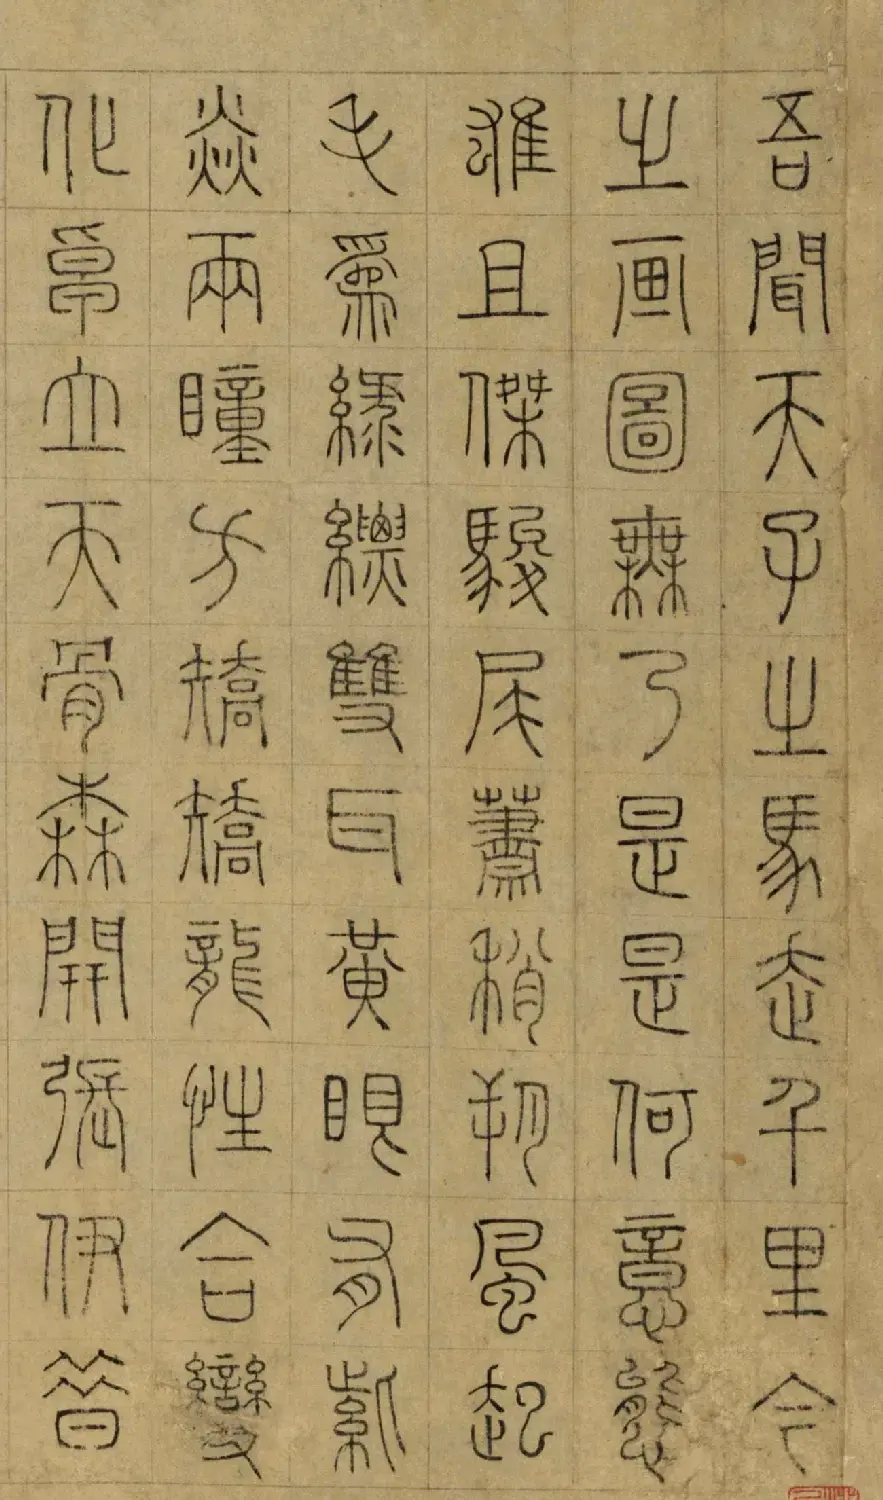 吾聞天子之馬走千里今
之画圖無乃是是何意態
雄且傑駿尾蕭稍朔風起
毛爲綠縹雙耳黃眼有紫
焱兩瞳方矯矯龍性合變
化卓立天骨森開張伊昔